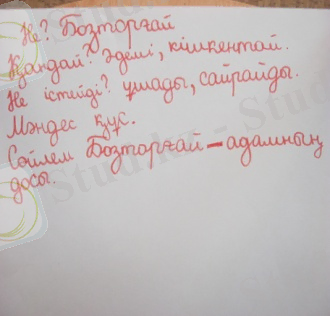 Не? Бозторғай
Қандай? Әдемі, кішкентай.
Не істейді? ұшады, сайрайды.
Мәндес құс.
Сөйлем Бозторғай – адамның
досы.